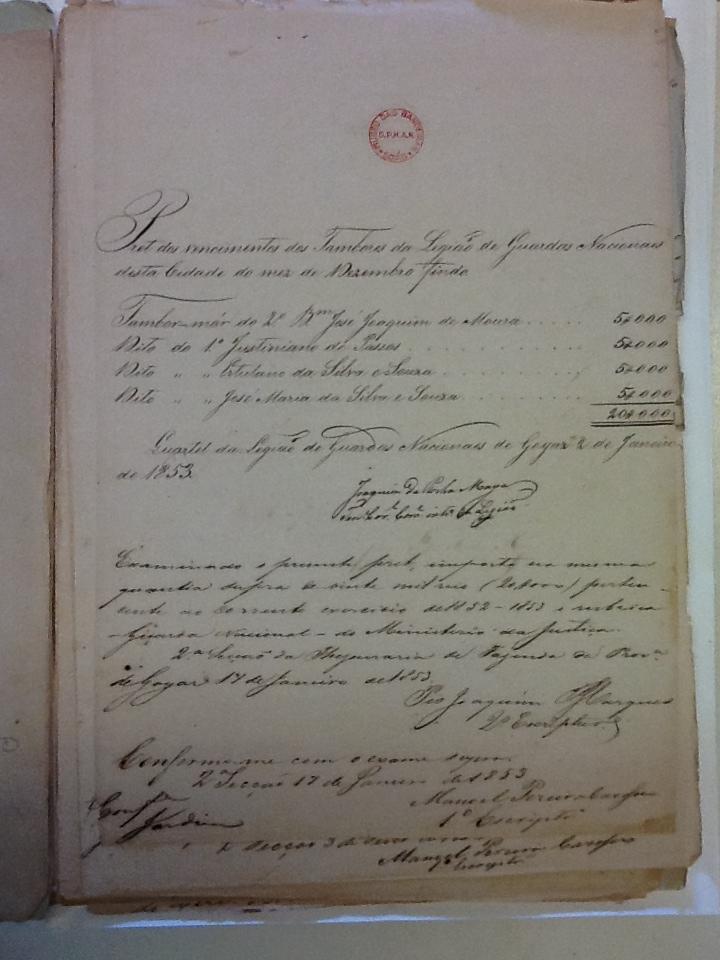 MUSEU DAS BANDEIRAS
S.P.H.A.N.
GOIÁS
Pret dos vencimentos dos Tambores da Legião de Guardas Nacionaes
desta Cidade do mez de Dezembro findo
Tambor-mór do 2º Bm José Joaquim de Moura . . . . . . 5$000
Dito do 1º Justiniano de Passos . . . . . . . . . . 5$000
Dito " " Estulano da Silva e Souza . . . . . . . 5$000
Dito " " José Maria da Silva e Souza . . . . . . 5$000
20$000
Quartel da Legião de Guardas Nacionaes de Goyaz 2 de Janeiro
de 1853.
Joaquim da Maya
da Legião
Examinado o presente pret, importa na mesma
quantia supra de vinte mil reis (20$000) perten-
cente ao corrente exercicio de 1852-1853 e rubrica
-Guarda Nacional- do Ministerio da Justiça.
2.ª Secção da Thesouraria de Fazenda da Prov.ª
de Goyaz 17 de Janeiro de 1853
Joaquim Marques
2º Escriptur.
Conformo-me com o exame supra.
2ª Secção 17 de Janeiro de 1853
Manoel Pereira Cardoso
1º Escriptº
Jardim
Secção 3 de
Manoel Pereira Cardoso